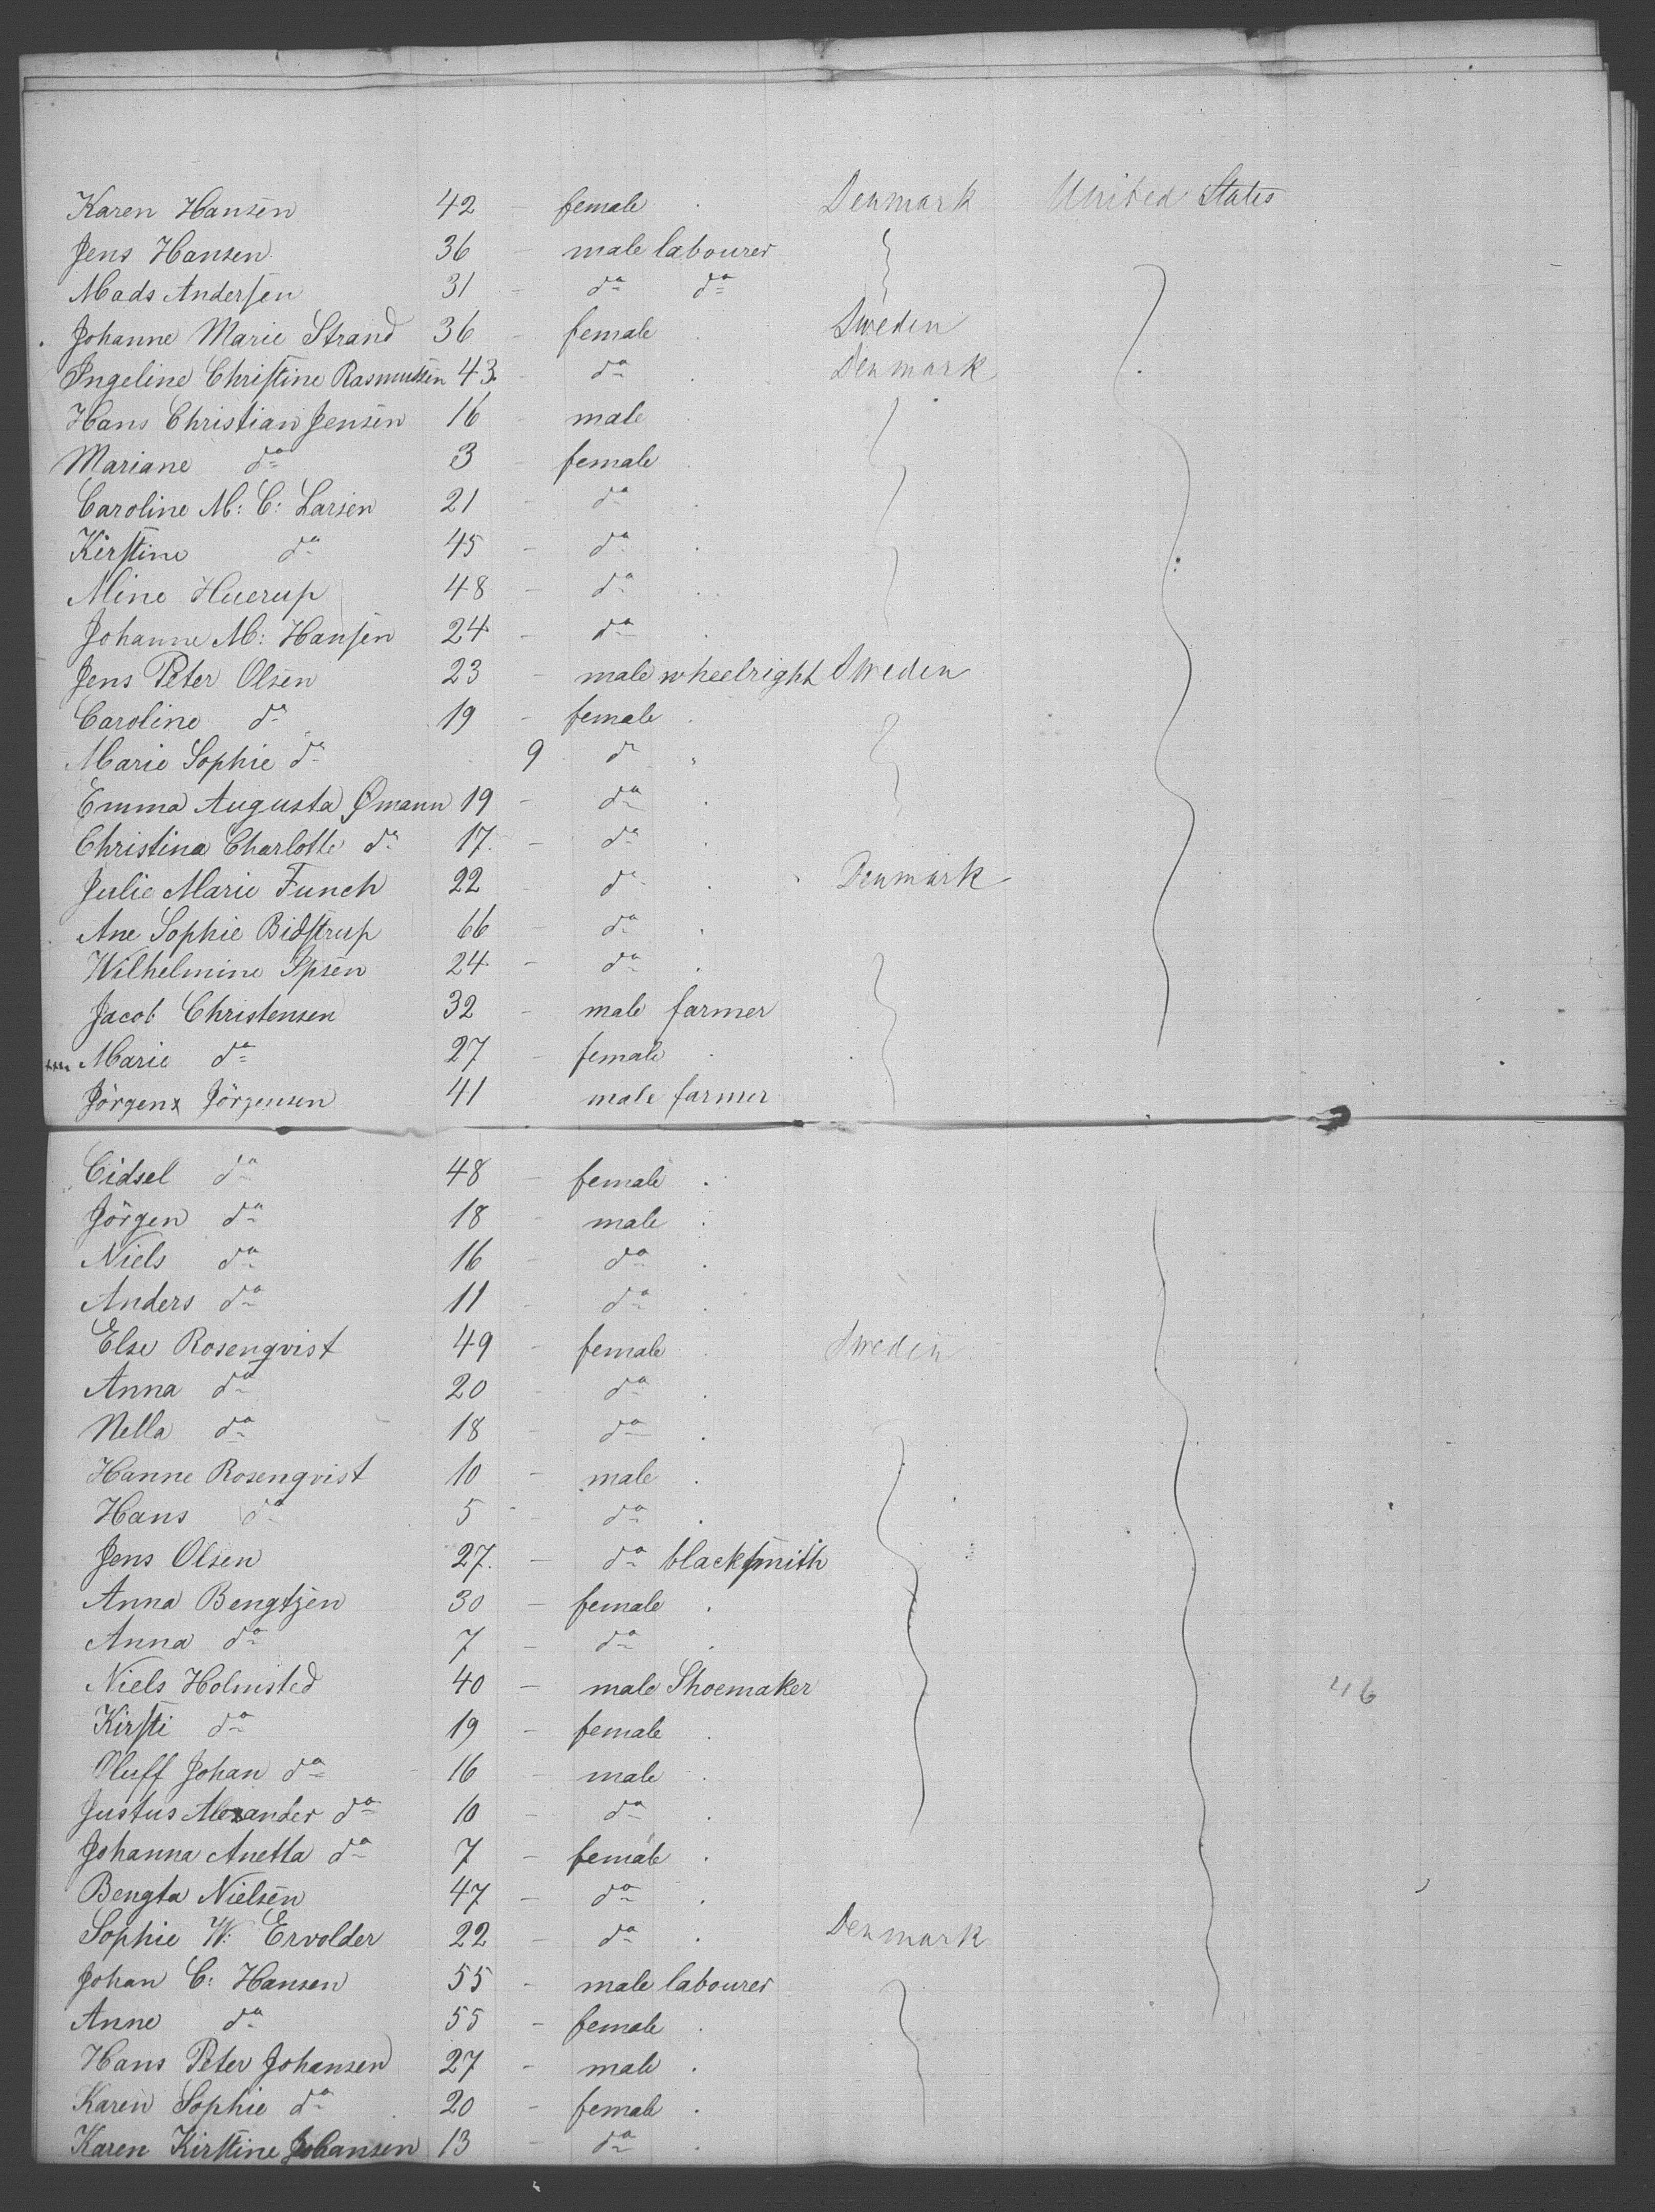 Karen Hansen 42 - female . Denmark United States
Jens Hansen 36 - male labourer
Mads Andersen 31 - do do
Johanne Marie Strand 36 - female . Sweden
Ingeline Christine Rasmussen 43 - do . Denmark
Hans Christian Jensen 16 - male .
Mariane do 3 - female .
Caroline M: C: Larsen 21 - do .
Kirstine do 45 - do .
Mine Huerup 48 - do .
Johanne M: Hansen 24 - do .
Jens Peter Olsen 23 - male wheelright Sweden
Caroline do 19 - female .
Marie Sophie do 9 do "
Emma Augusta Ømann 19 - do .
Christina Charlotte do 17 - do .
Julie Marie Funch 22 - do . Denmark
Ane Sophie Bidstrup 66 - do .
Wilhelmine Ipsen 24 - do .
Jacob Christensen 32 - male farmer
Marie do 27 - female .
Jörgen Jörgensen 41 male farmer
Cidsel do 48 - female .
Jörgen do 18 - male .
Niels do 16 - do .
Anders do 11 - do .
Else Rosenqvist 49 - female . Sweden
Anna do 20 - do .
Nella do 18 - do .
Hanne Rosenqvist 10 - male .
Hans do 5 - do .
Jens Olsen 27 - do blacksmith
Anna Bengtzen 30 - female .
Anna do 7 - do .
Niels Holmsted 40 - male Shoemaker 46
Kirsti do 19 - female .
Oluff Johan do 16 - male .
Justus Alexander do 10 - do .
Johanna Anetta do 7 - female .
Bengta Nielsen 47 - do .
Sophie W: Ervolder 22 - do . Denmark
Johan C: Hansen 55 - male labourer
Anne do 55 - female .
Hans Peter Johansen 27 - male .
Karen Sophie do 20 - female .
Karen Kirstine Johansen 13 - do .